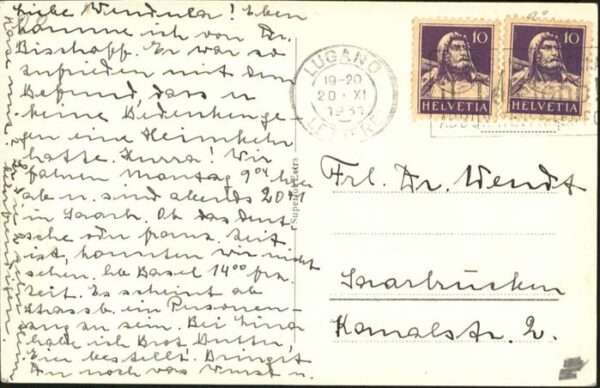 Liebe Wendula! Eben
komme ich von Dr.
Bischoff. Er war so
zufrieden mit dem
Befund, dass er
keine Bedenken ge-
gen eine Heimkehr
hatte. Hurra! Wir
fahren Montag 9⁰⁴ hier
ab u. sind abends 20
in Saarb. Ob das deut-
sche oder franz. Zeit
ist, konnten wir nicht
sehen. ab Basel 14⁰⁰ frz.
Zeit. Es scheint ab
Strassb. ein Personen-
zug zu sein. Bei
habe ich Brot, Butter,
bestellt. Bringst
Du noch was Wurst u.
Käse
LUGANO
19-20
20·XI
LETTERE
10
HELVETIA
10
HELVETIA
Frl. Dr. Wendt
Saarbrücken
Kanalstr. 2.